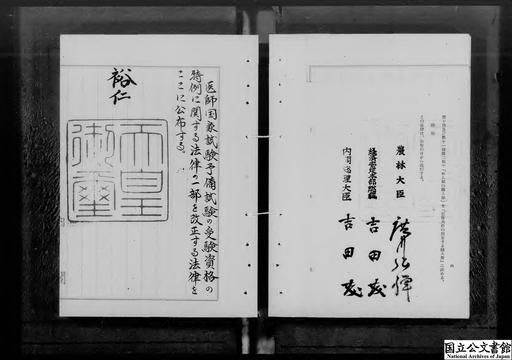 農林大臣
広川弘禅
経済安定本部総裁
吉田茂
内閣総理大臣
吉田茂
医師国家試験予備試験の受験資格の
特例に関する法律の一部を改正する法律を
ここに公布する。
裕仁
天皇
御璽
国立公文書館
National Archives of Japan